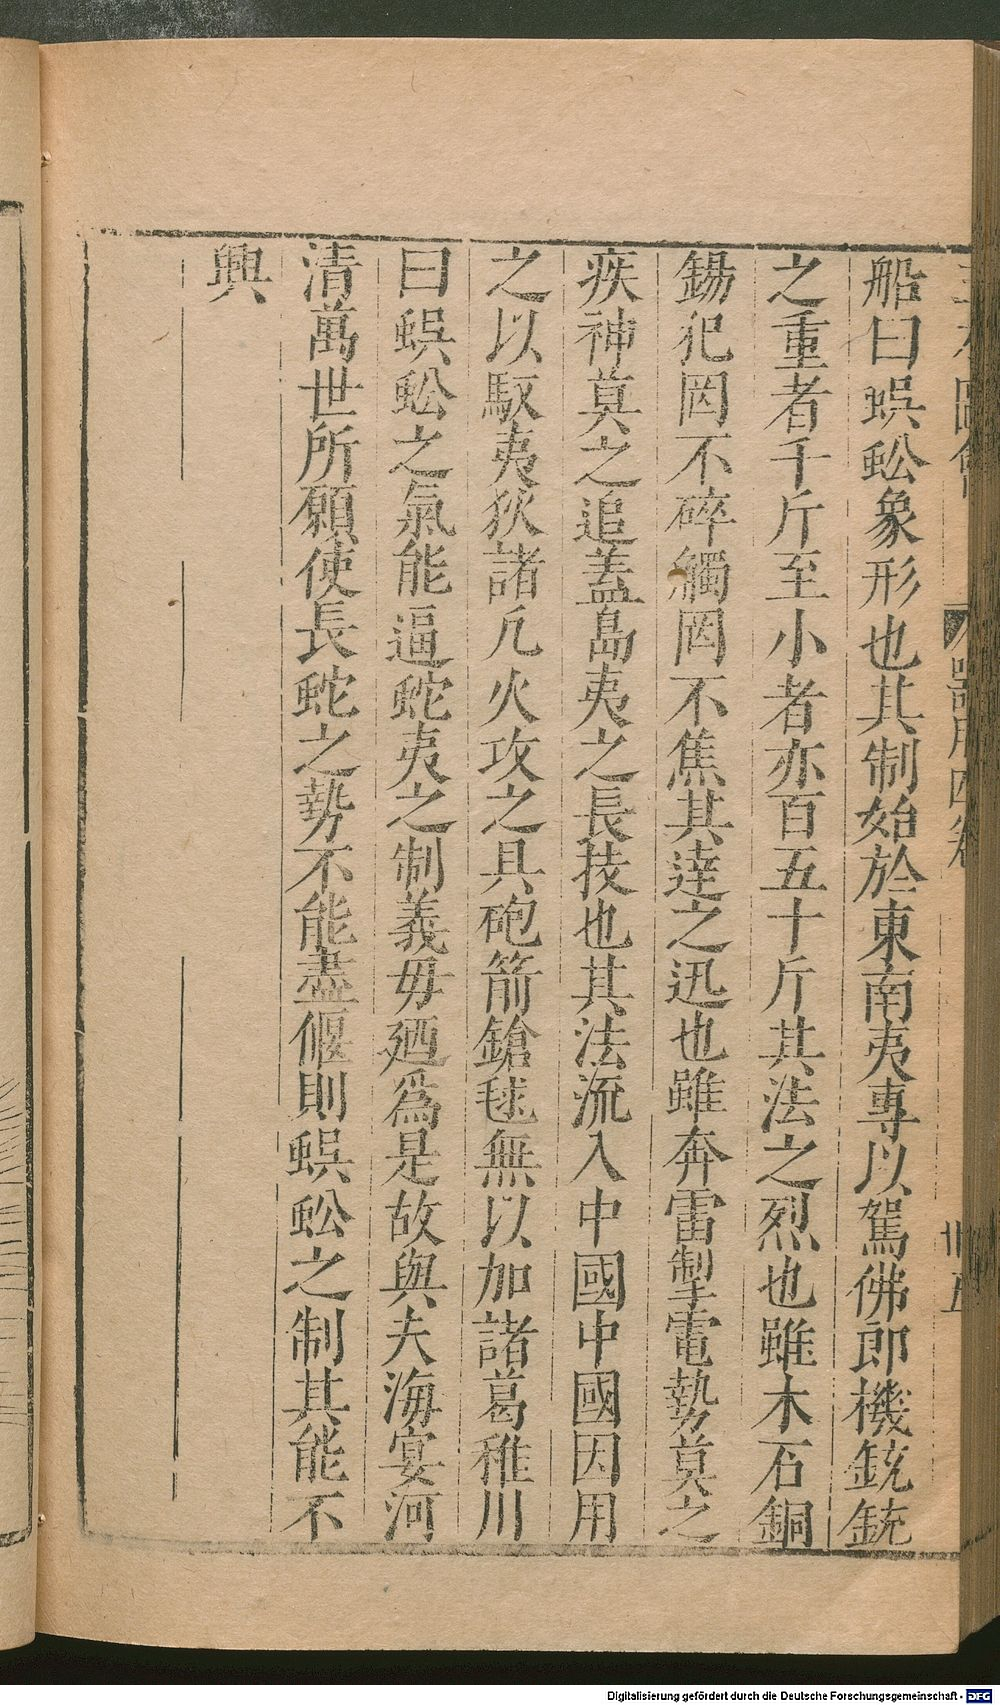 三才圖會
器用四卷
廿五
船曰蜈蚣象形也其制始於東南夷專以駕佛郎機銃銃
之重者千斤至小者亦百五十斤其法之烈也雖木石銅
錫犯罔不碎觸罔不焦其達之迅也雖奔雷掣電勢莫之
疾神莫之追蓋島夷之長技也其法流入中國中國因用
之以馭夷狄諸凡火攻之具砲箭鎗毬無以加諸葛稚川
曰蜈蚣之氣能逼蛇夷之制義毋廼爲是故與夫海宴河
清萬世所願使長蛇之勢不能盡偃則蜈蚣之制其能不
興
Digitalisierung gefördert durch die Deutsche Forschungsgemeinschaft - DFG